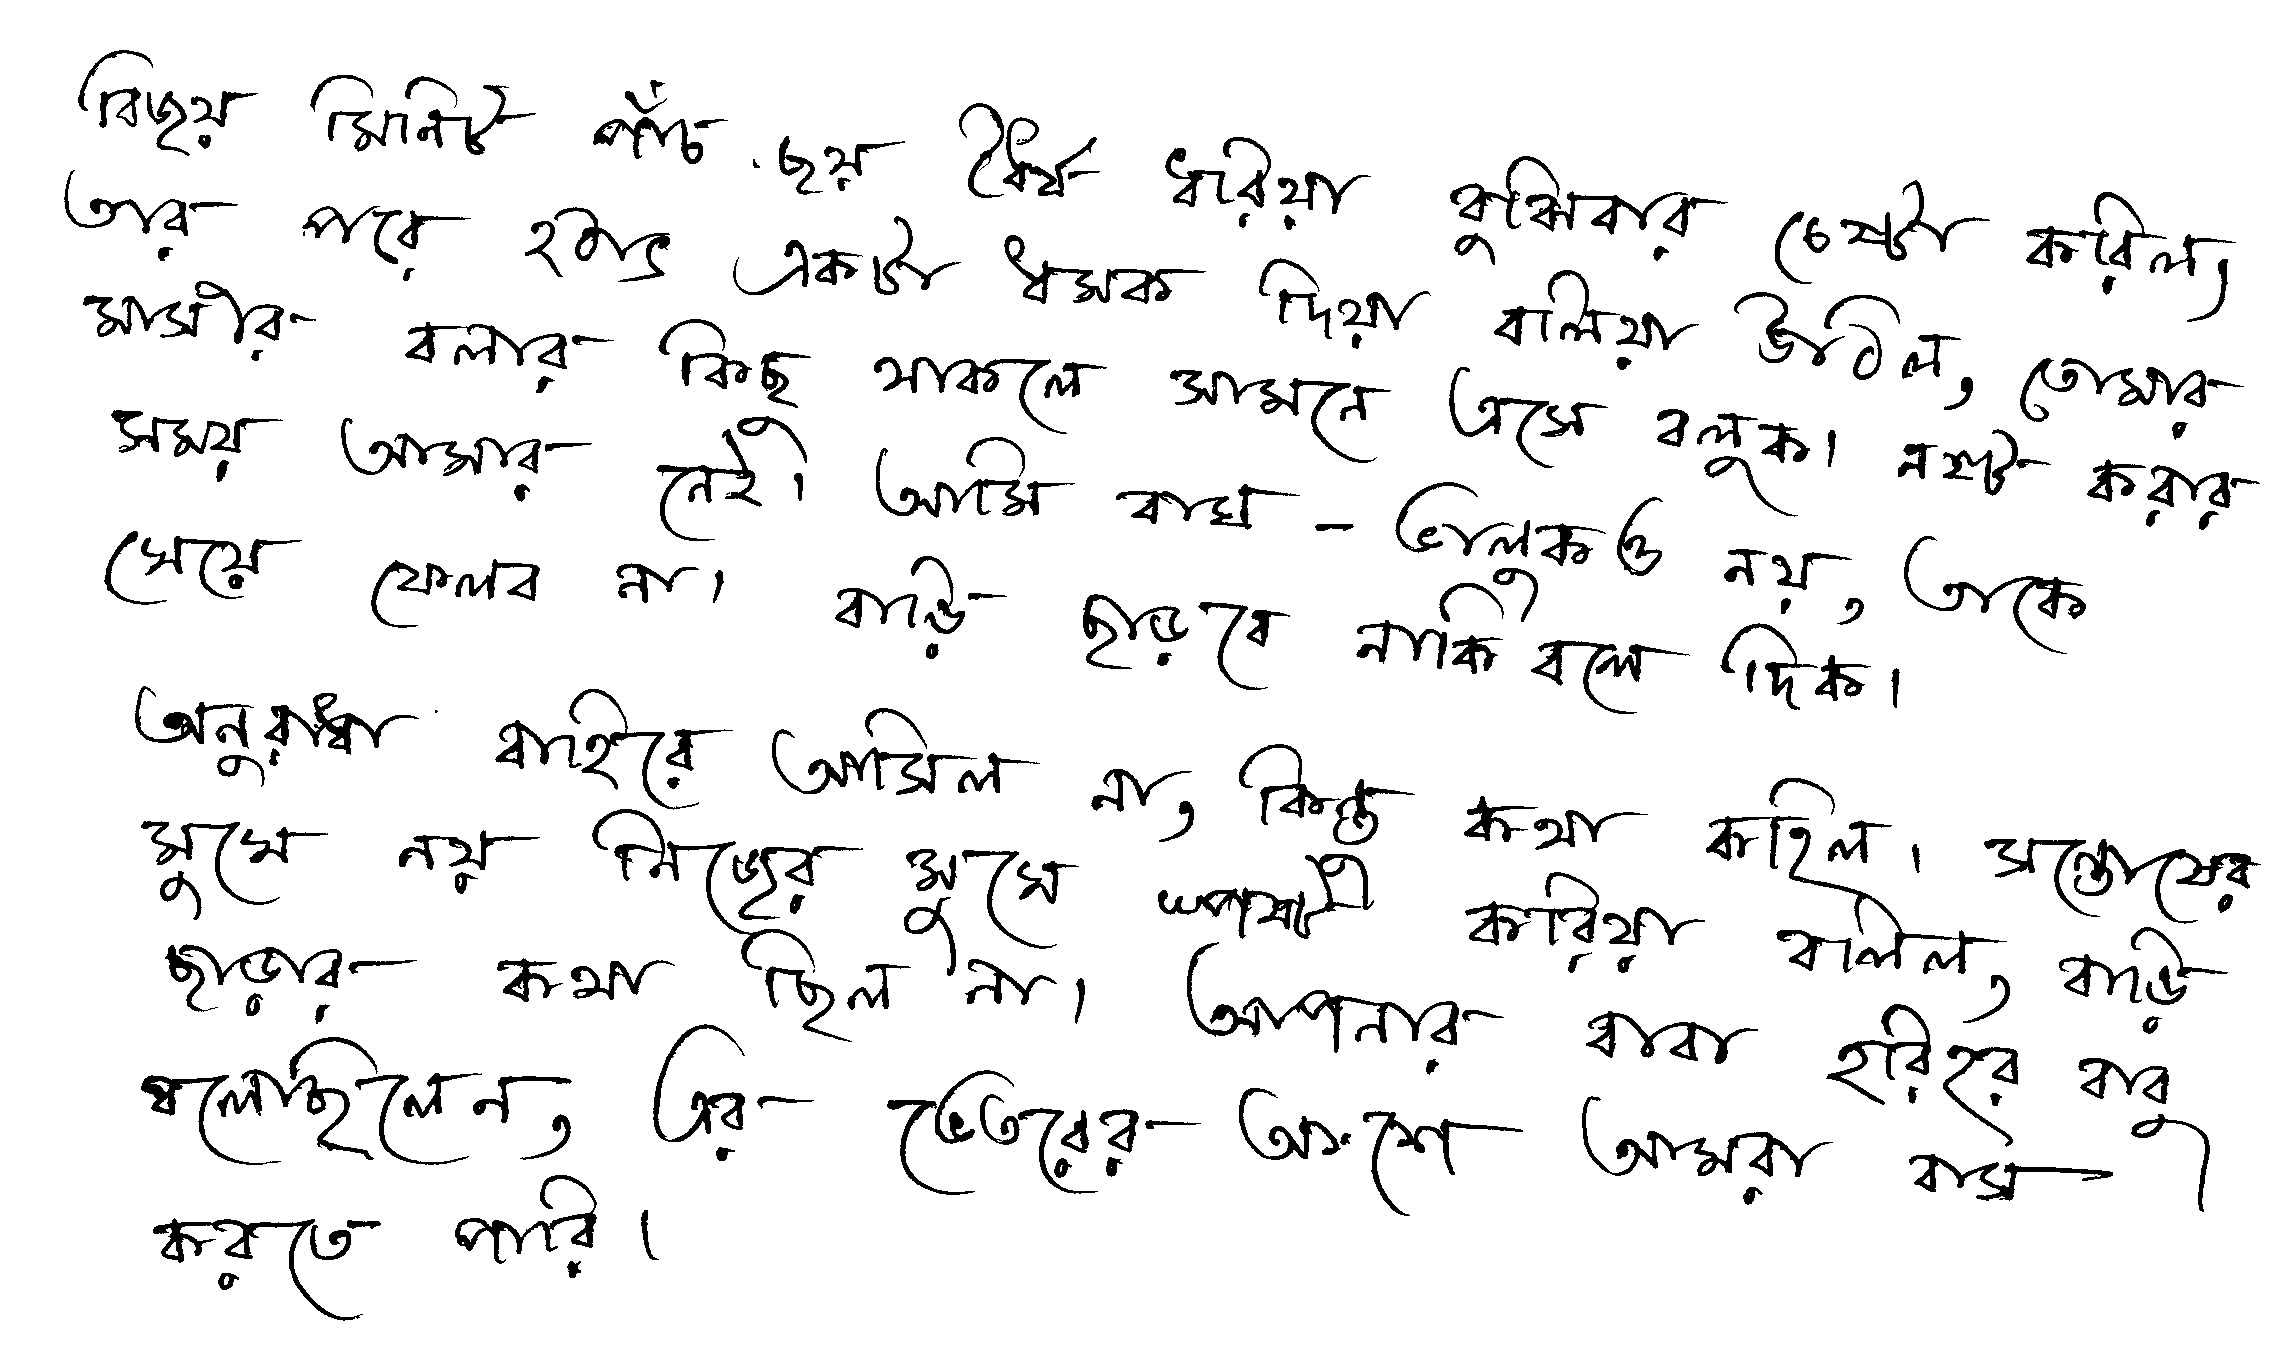 বিজয় মিনিট পাঁচ ছয় ধৈর্য ধরিয়া বুঝিবার চেষ্টা করিল,
তার পরে হঠাৎ একটা ধমক দিয়া বলিয়া উঠিল, তোমার
মাসীর বলার কিছু থাকলে সামনে এসে বলুক। নষ্ট করার
সময় আমার নেই। আমি বাঘ - ভালুকও নয়, তাকে
খেয়ে ফেলব না। বাড়ি ছাড়বে নাকি বলে দিক।
অনুরাধা বাহিরে আসিল না, কিন্তু কথা কহিল। সন্তোষের
মুখে নয় নিজের মুখে স্পষ্ট করিয়া বলিল, বাড়ি
ছাড়ার কথা ছিল না। আপনার বাবা হরিহর বাবু
বলেছিলেন, এর ভেতরের অংশে আমরা বাস
করতে পারি।